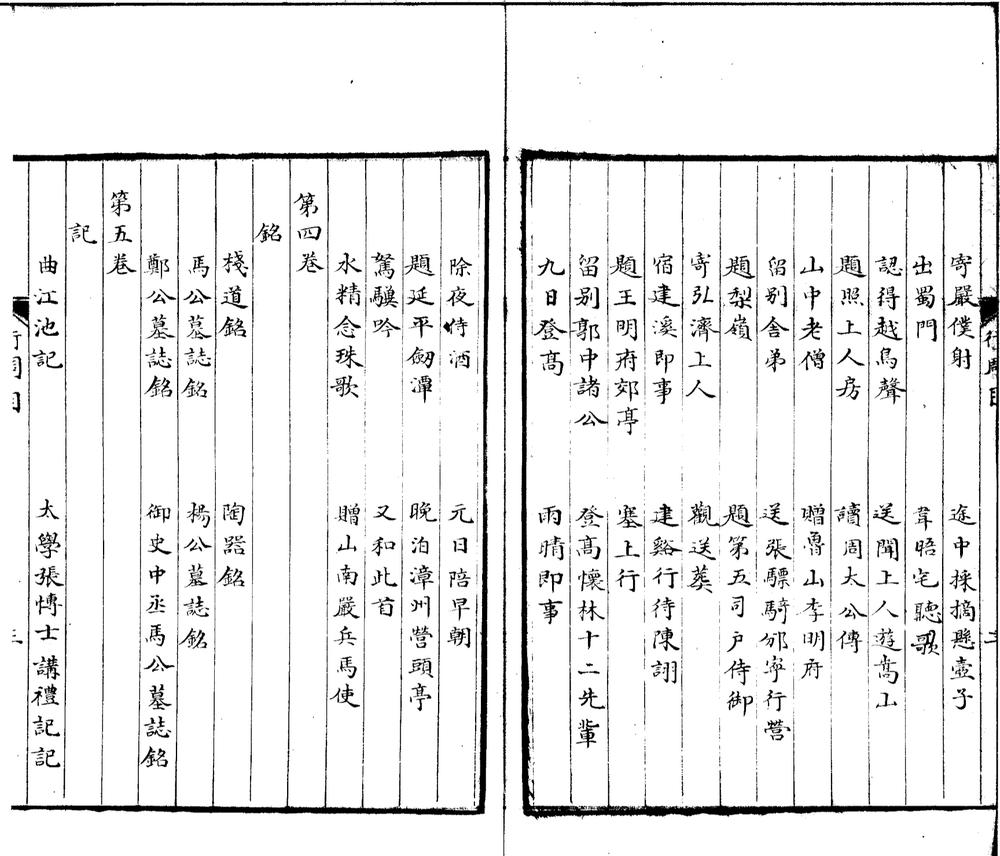 寄嚴僕射 途中採摘懸壺子
出蜀門 韋晤宅聽歌
認得越鳥聲 送聞上人遊嵩山
題照上人房 讀周太公傳
山中老僧 贈魯山李明府
留别舍弟 送張驃騎邠寧行營
題梨嶺 題第五司户侍御
寄弘濟上人 觀送葬
宿建溪即事 建谿行待陳詡
題王明府郊亭 塞上行
留别郭中諸公 登髙懷林十二先輩
九日登髙 雨晴即事
除夜侍酒 元日陪早朝
題延平劒潭 晚泊漳州營頭亭
駑驥吟 又和此首
水精念珠歌 贈山南嚴兵馬使
第四卷
銘
棧道銘 陶器銘
馬公墓誌銘 楊公墓誌銘
鄭公墓誌銘 御史中丞馬公墓誌銘
第五卷
記
曲江池記 太學張愽士講禮記記
行周目
三